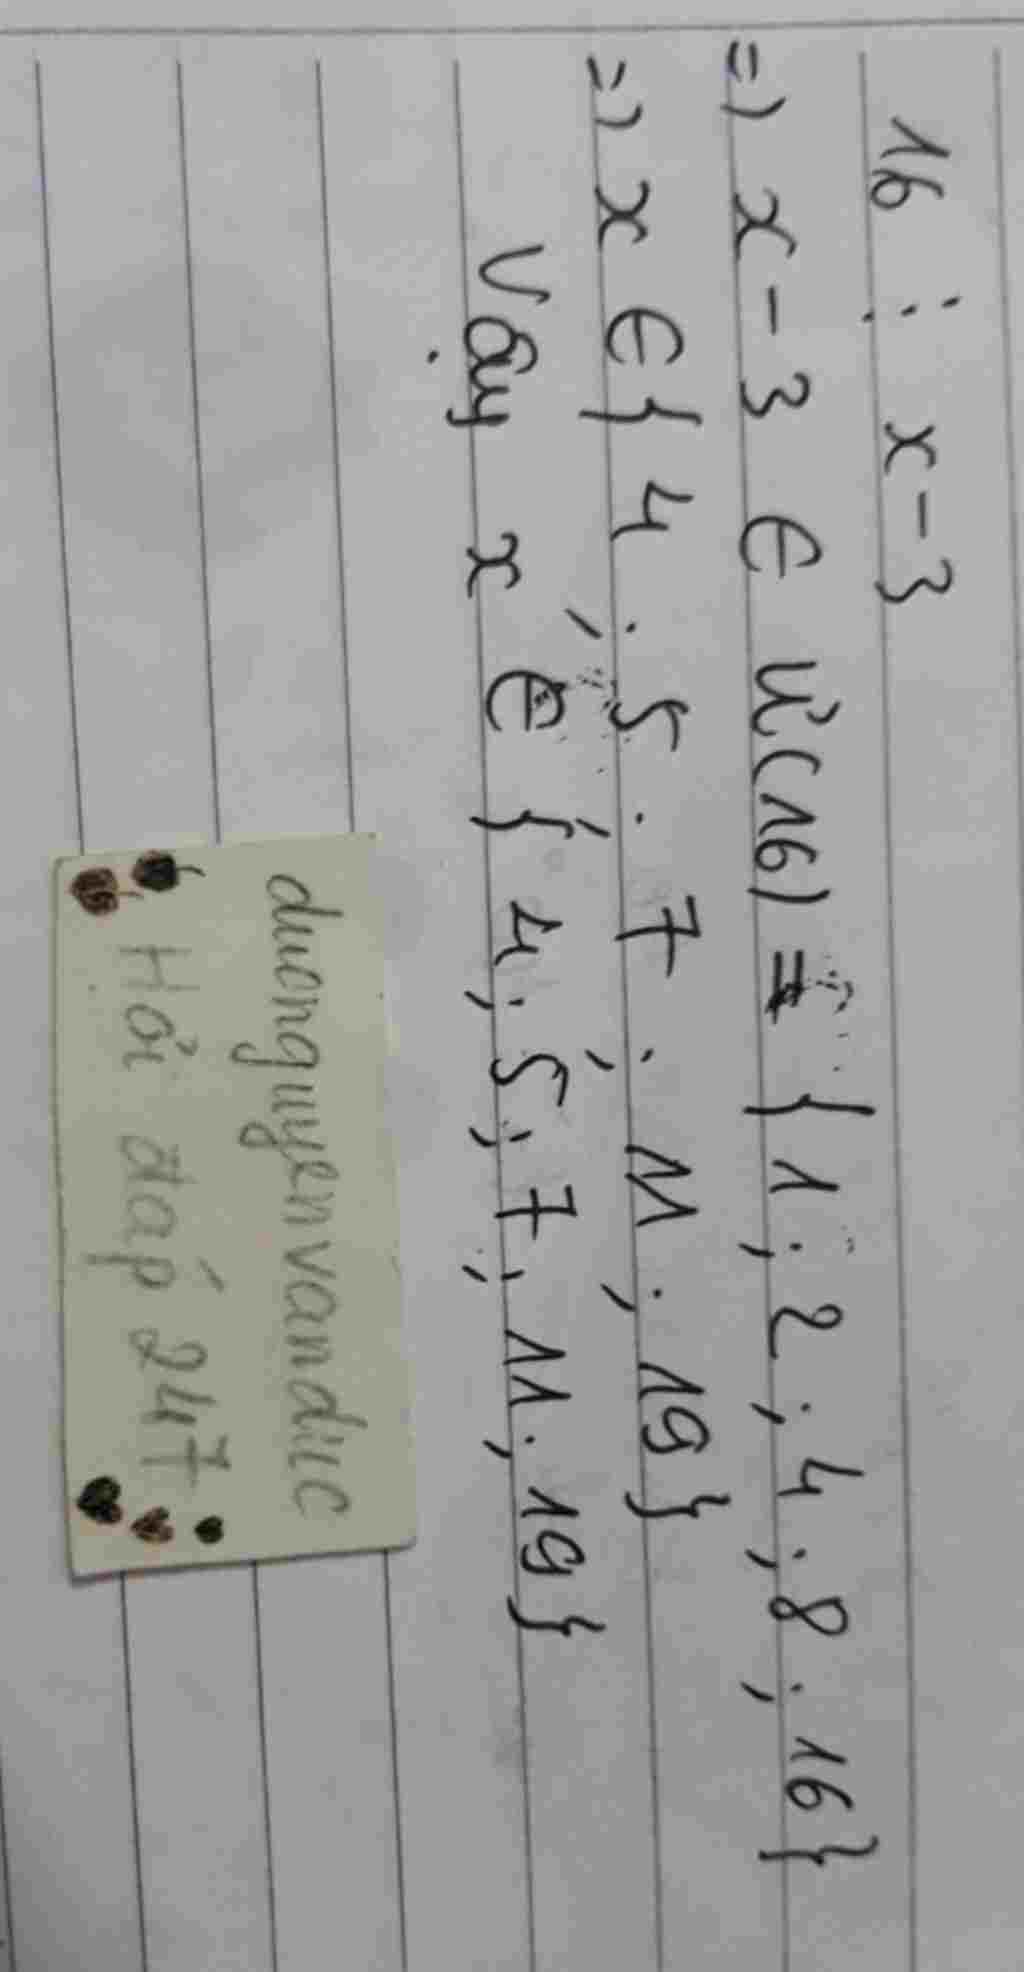 16 ⋮ x-3
=) x-3 ∈ Ư(16) = { 1 ; 2 ; 4 ; 8 ; 16}
=) x ∈ { 4 ; 5 ; 7 ; 11 ; 19}
Vậy x ∈ { 4 ; 5 ; 7 ; 11 ; 19}
duongnguyenvanduc
Hỏi đáp 247